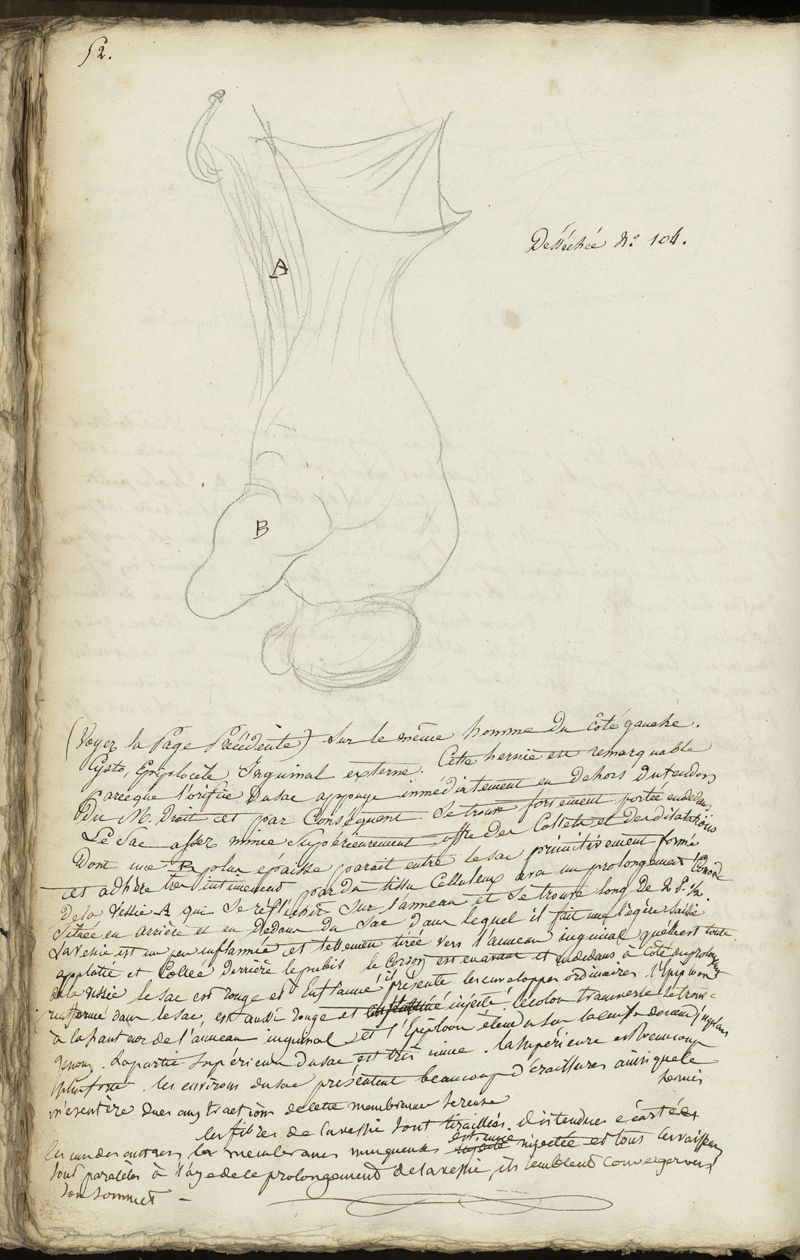 52.
Desséchée N.º 104.
A
B
(Voyez la Page Précédente) Sur le même homme Du côté gauche.
Cysto, Epiplocèle Inguinal externe. Cette hernie est remarquable
Parceque l'orifice Dusac appuye immédiatement en dehors Dutendon
Du M. Droit et par Conséquent Se trouve fortement portée endedans
Le Sac assez mince Supérieurement offre des Collets et Des dilatations
Dont une plus épaisse parait entre le sac primitivement formé
et adhère très intimement par Du tissu Celluleux avec un prolongement
Dela Vessie A qui Se réfléchit Sur l'anneau et Se trouve long de 2 P. ½
Située en arrière et en Dedans Du Sac Dans lequel il fait une légère Saillie
La vessie est un peu enflammée et tellement tirée vers l'anneau inguinal quelle est toute
applatie et Collée Derrière lepubis le Cordon est en avant et endedans à côté duprolong
dela vessie le sac est rouge et Enflammé il présente les enveloppes ordinaires. l'Epiploon
renfermé dans le sac, est aussi rouge et injecté. le colon transverse se trouve
à la hauteur de l'anneau inguinal et l'Epiploon étendu sur la
genoux. La partie Supérieure du sac est très mince. la Supérieure est beaucoup
plus forte. les environs du sac présentent beaucoup d'éraillures ainsi que le
mésentère dues aux tractions de cette membrane Sereuse
hernié
les fibres de la vessie sont tiraillées. Distendues écartées
les unes des autres, les membranes muqueuse est une injectée et tous les vaisseaux
sont paralèles à l'axe de le prolongement de la vessie, ils semblent converger vers
Son Sommet —